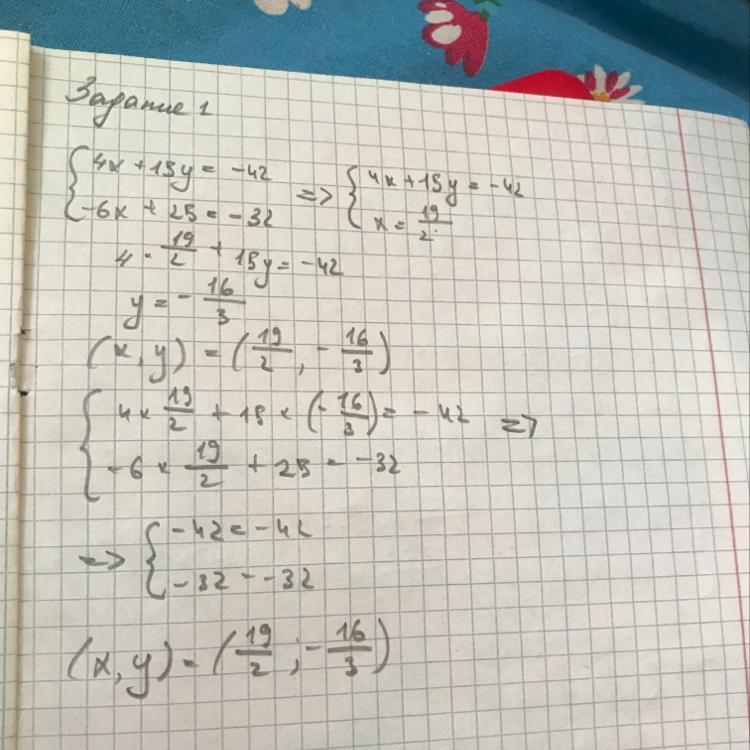 Задание 1
{ 4x + 15y = -42 => { 4x + 15y = -42
{ -6x + 25 = -32 { x = 19/2
4 · 19/2 + 15y = -42
y = - 16/3
(x, y) = (19/2, - 16/3)
{ 4 × 19/2 + 15 × (- 16/3) = -42 =>
{ -6 × 19/2 + 25 = -32
=> { -42 = -42
{ -32 = -32
(x, y) = (19/2 ; - 16/3)